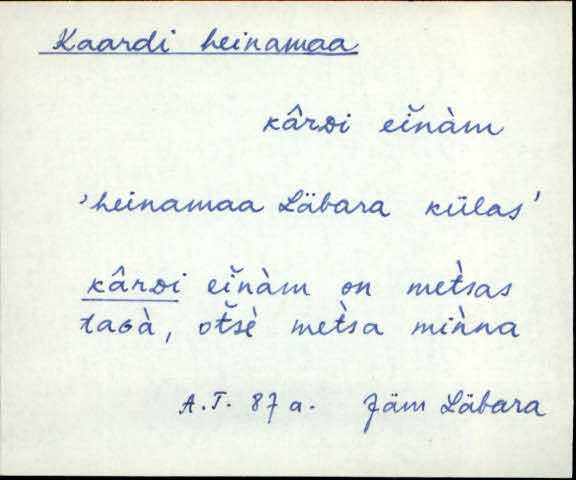 Kaardi heinamaa
kârᴅi eĭnàm
'heinamaa Läbara külas'
kârᴅi eĭnàm on met̀sas
taɢà, ot̆sè met̀sa miǹna
A.T. 87 a. Jäm Läbara